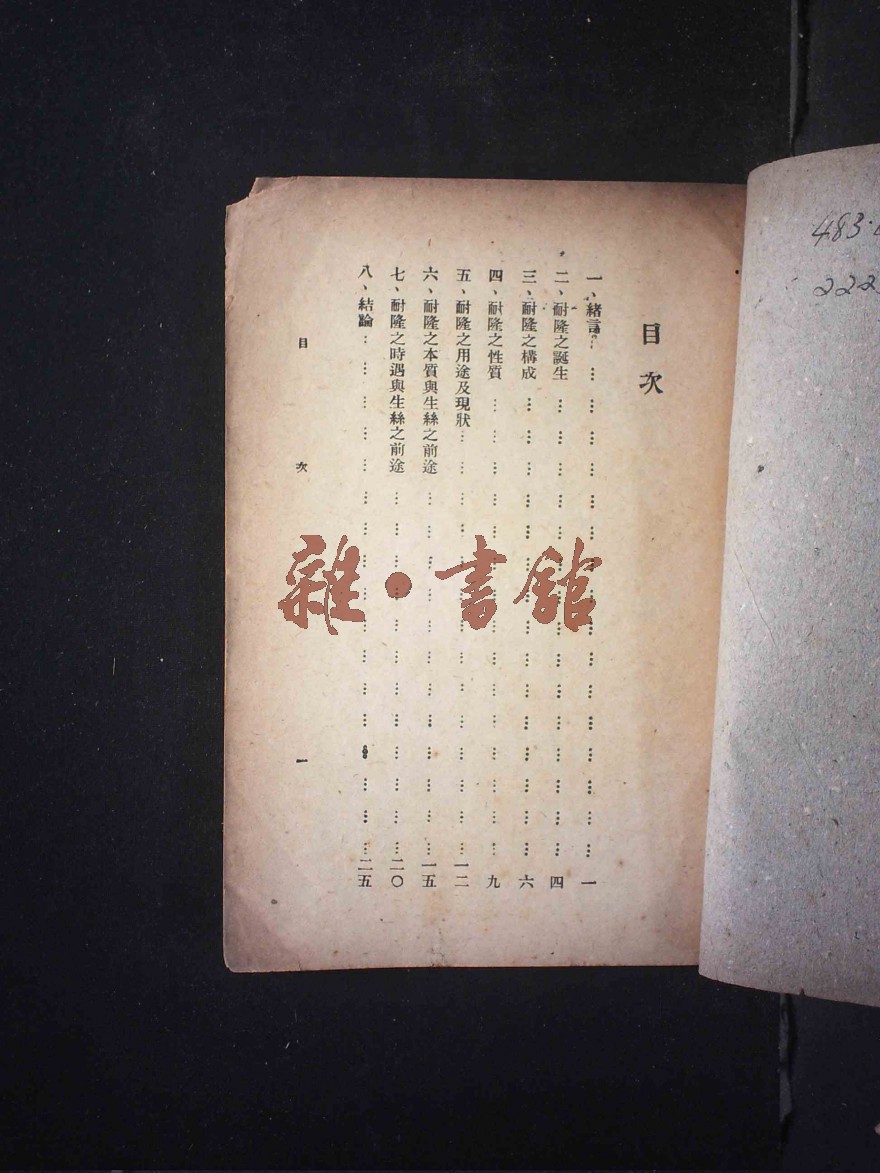 目次
一、緒言…………一
二、耐隆之誕生…………四
三、耐隆之構成…………六
四、耐隆之性質…………九
五、耐隆之用途及現狀…………一二
六、耐隆之本質與生絲之前途…………一五
七、耐隆之時遇與生絲之前途…………二〇
八、結論…………二五
目次 一
雜·書館